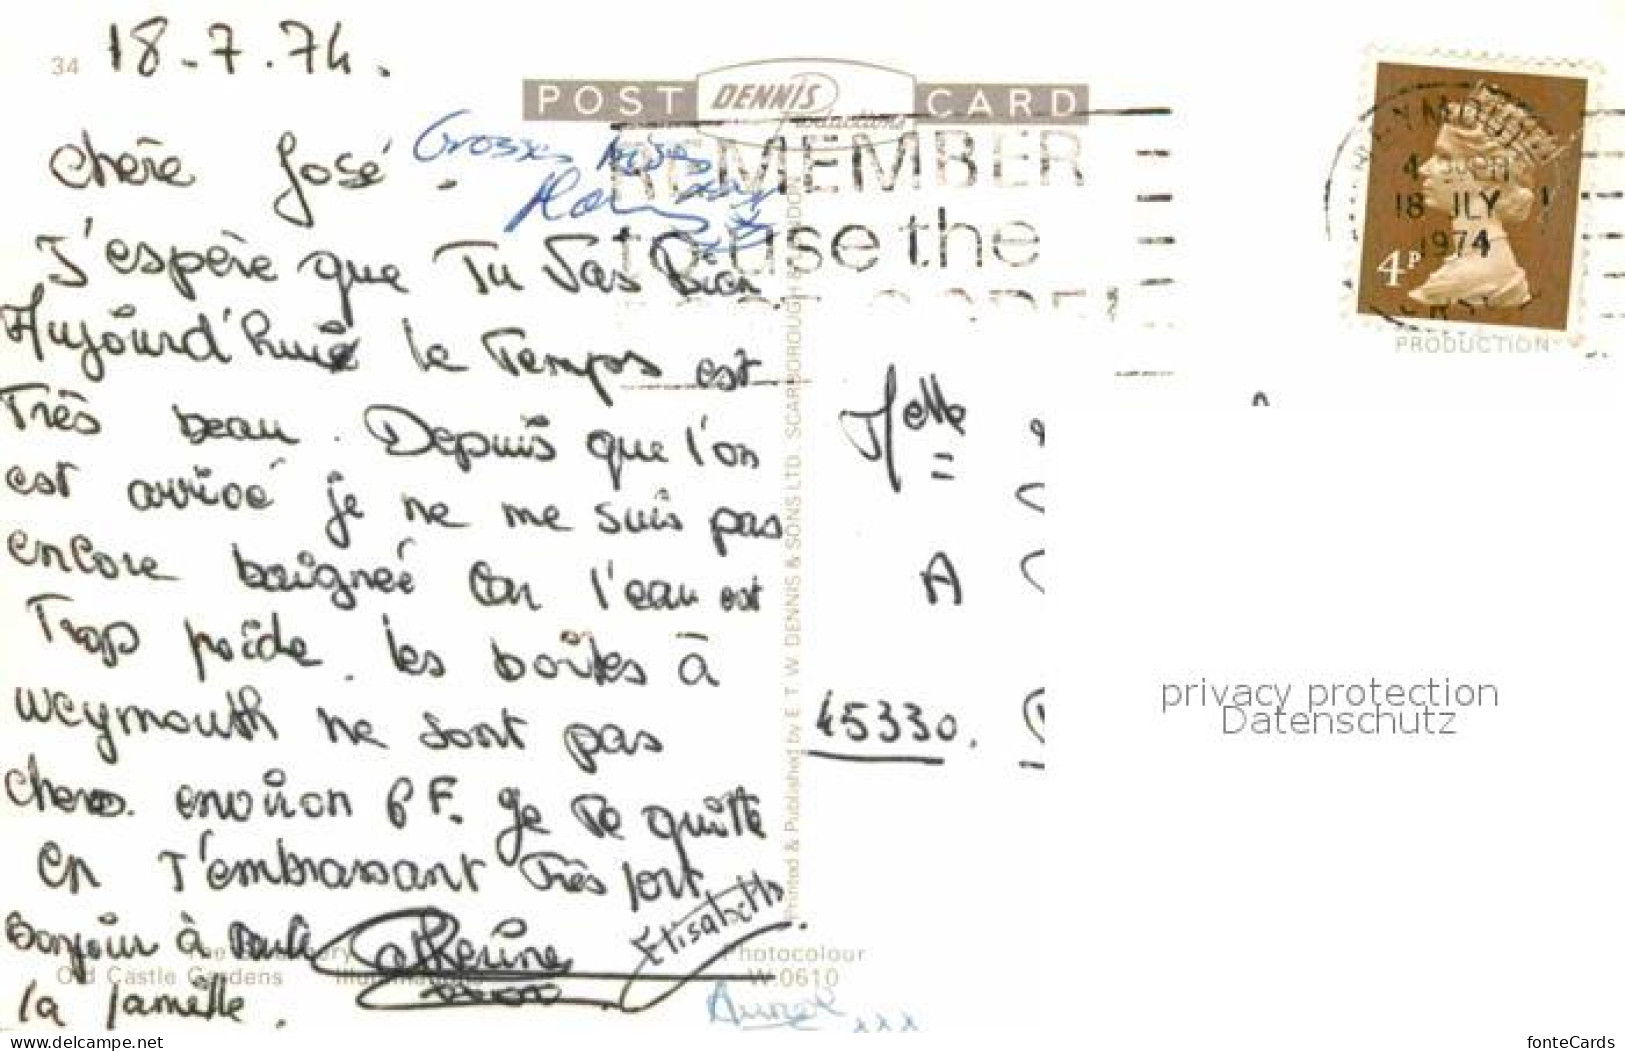 34
18.7.74.
POST DENNIS Productions CARD
Chère José.
Grosses bises
xxx
REMEMBER
to use the
WEYMOUTH
18 JLY
1974
4P
PRODUCTION
J'espère que Tu Vas Bien
Aujourd'huie le Temps est
Très beau. Depuis que l'on
est arrivé je ne me suis pas
encore baignée Car l'eau est
Trop froide. les boîtes à
weymouth ne sont pas
chers. environ 6 F. Je Te quitte
en T'embrassant Très fort
Bonjour à toute
la famille.
Catherine
Elisabeth
xxx
Old Castle Gardens
Photocolour
W.0610
Printed & Published by E. T. W. DENNIS & SONS LTD. SCARBOROUGH & LONDON
Melle
A
45330.
privacy protection
Datenschutz
www.delcampe.net
fonteCards